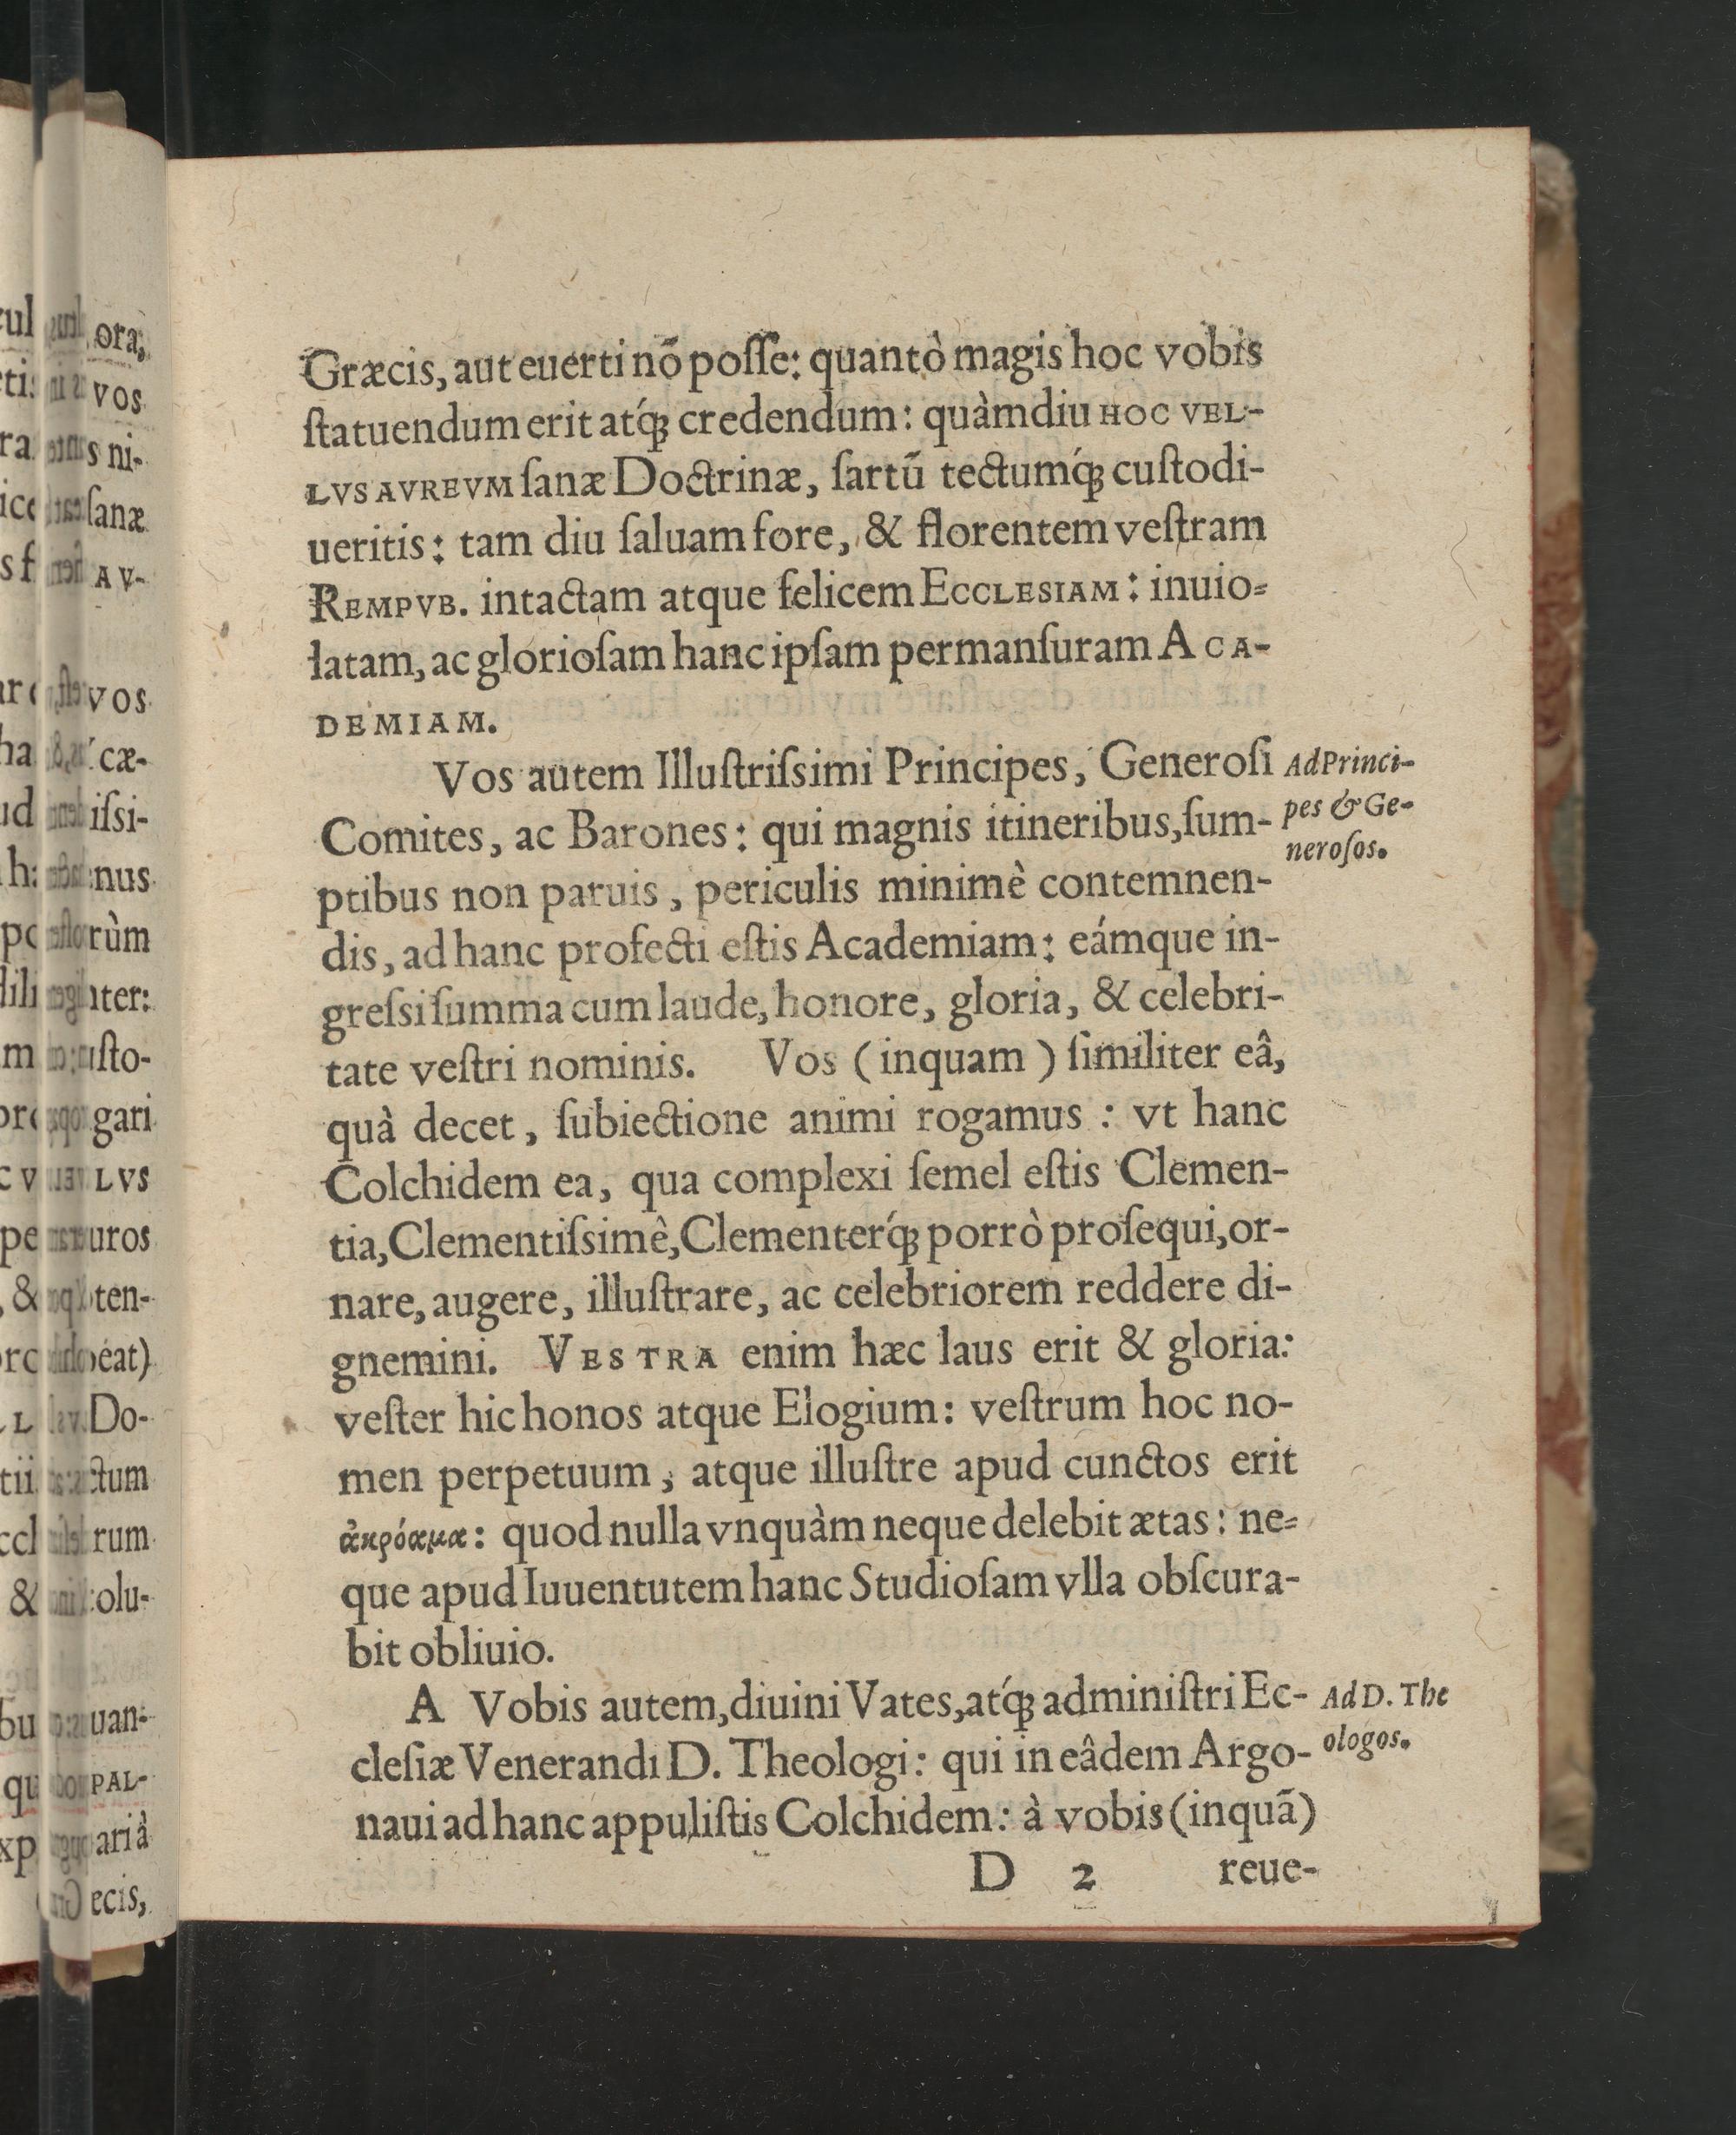 Græcis, aut euerti nõ poſſe: quantò magis hoc vobis
ſtatuendum erit atq́ꝫ credendum: quàmdiu HOC VEL-
LVS AVREVM ſanæ Doctrinæ, ſartũ tectumq́ꝫ cuſtodi-
ueritis: tam diu ſaluam fore, & florentem veſtram
REMPVB. intactam atque felicem ECCLESIAM: inuio-
latam, ac glorioſam hanc ipſam permanſuram ACA-
DEMIAM.
Vos autem Illuſtriſsimi Principes, Generoſi
Ad Princi-
Comites, ac Barones: qui magnis itineribus, ſum-
pes & Ge-
neroſos.
ptibus non paruis, periculis minimè contemnen-
dis, ad hanc profecti eſtis Academiam: eámque in-
greſsi ſumma cum laude, honore, gloria, & celebri-
tate veſtri nominis. Vos (inquam) ſimiliter eâ,
quà decet, ſubiectione animi rogamus: vt hanc
Colchidem ea, qua complexi ſemel eſtis Clemen-
tia, Clementiſsimê, Clementerq́ꝫ porrò proſequi, or-
nare, augere, illuſtrare, ac celebriorem reddere di-
gnemini. VESTRA enim hæc laus erit & gloria:
veſter hic honos atque Elogium: veſtrum hoc no-
men perpetuum, atque illuſtre apud cunctos erit
ἀκρόαμα: quod nulla vnquàm neque delebit ætas: ne-
que apud Iuuentutem hanc Studioſam vlla obſcura-
bit obliuio.
A Vobis autem, diuini Vates, atq́ꝫ adminiſtri Ec-
Ad D. The
cleſiæ Venerandi D. Theologi: qui in eâdem Argo-
ologos.
naui ad hanc appuliſtis Colchidem: à vobis (inquã)
D 2 reue-